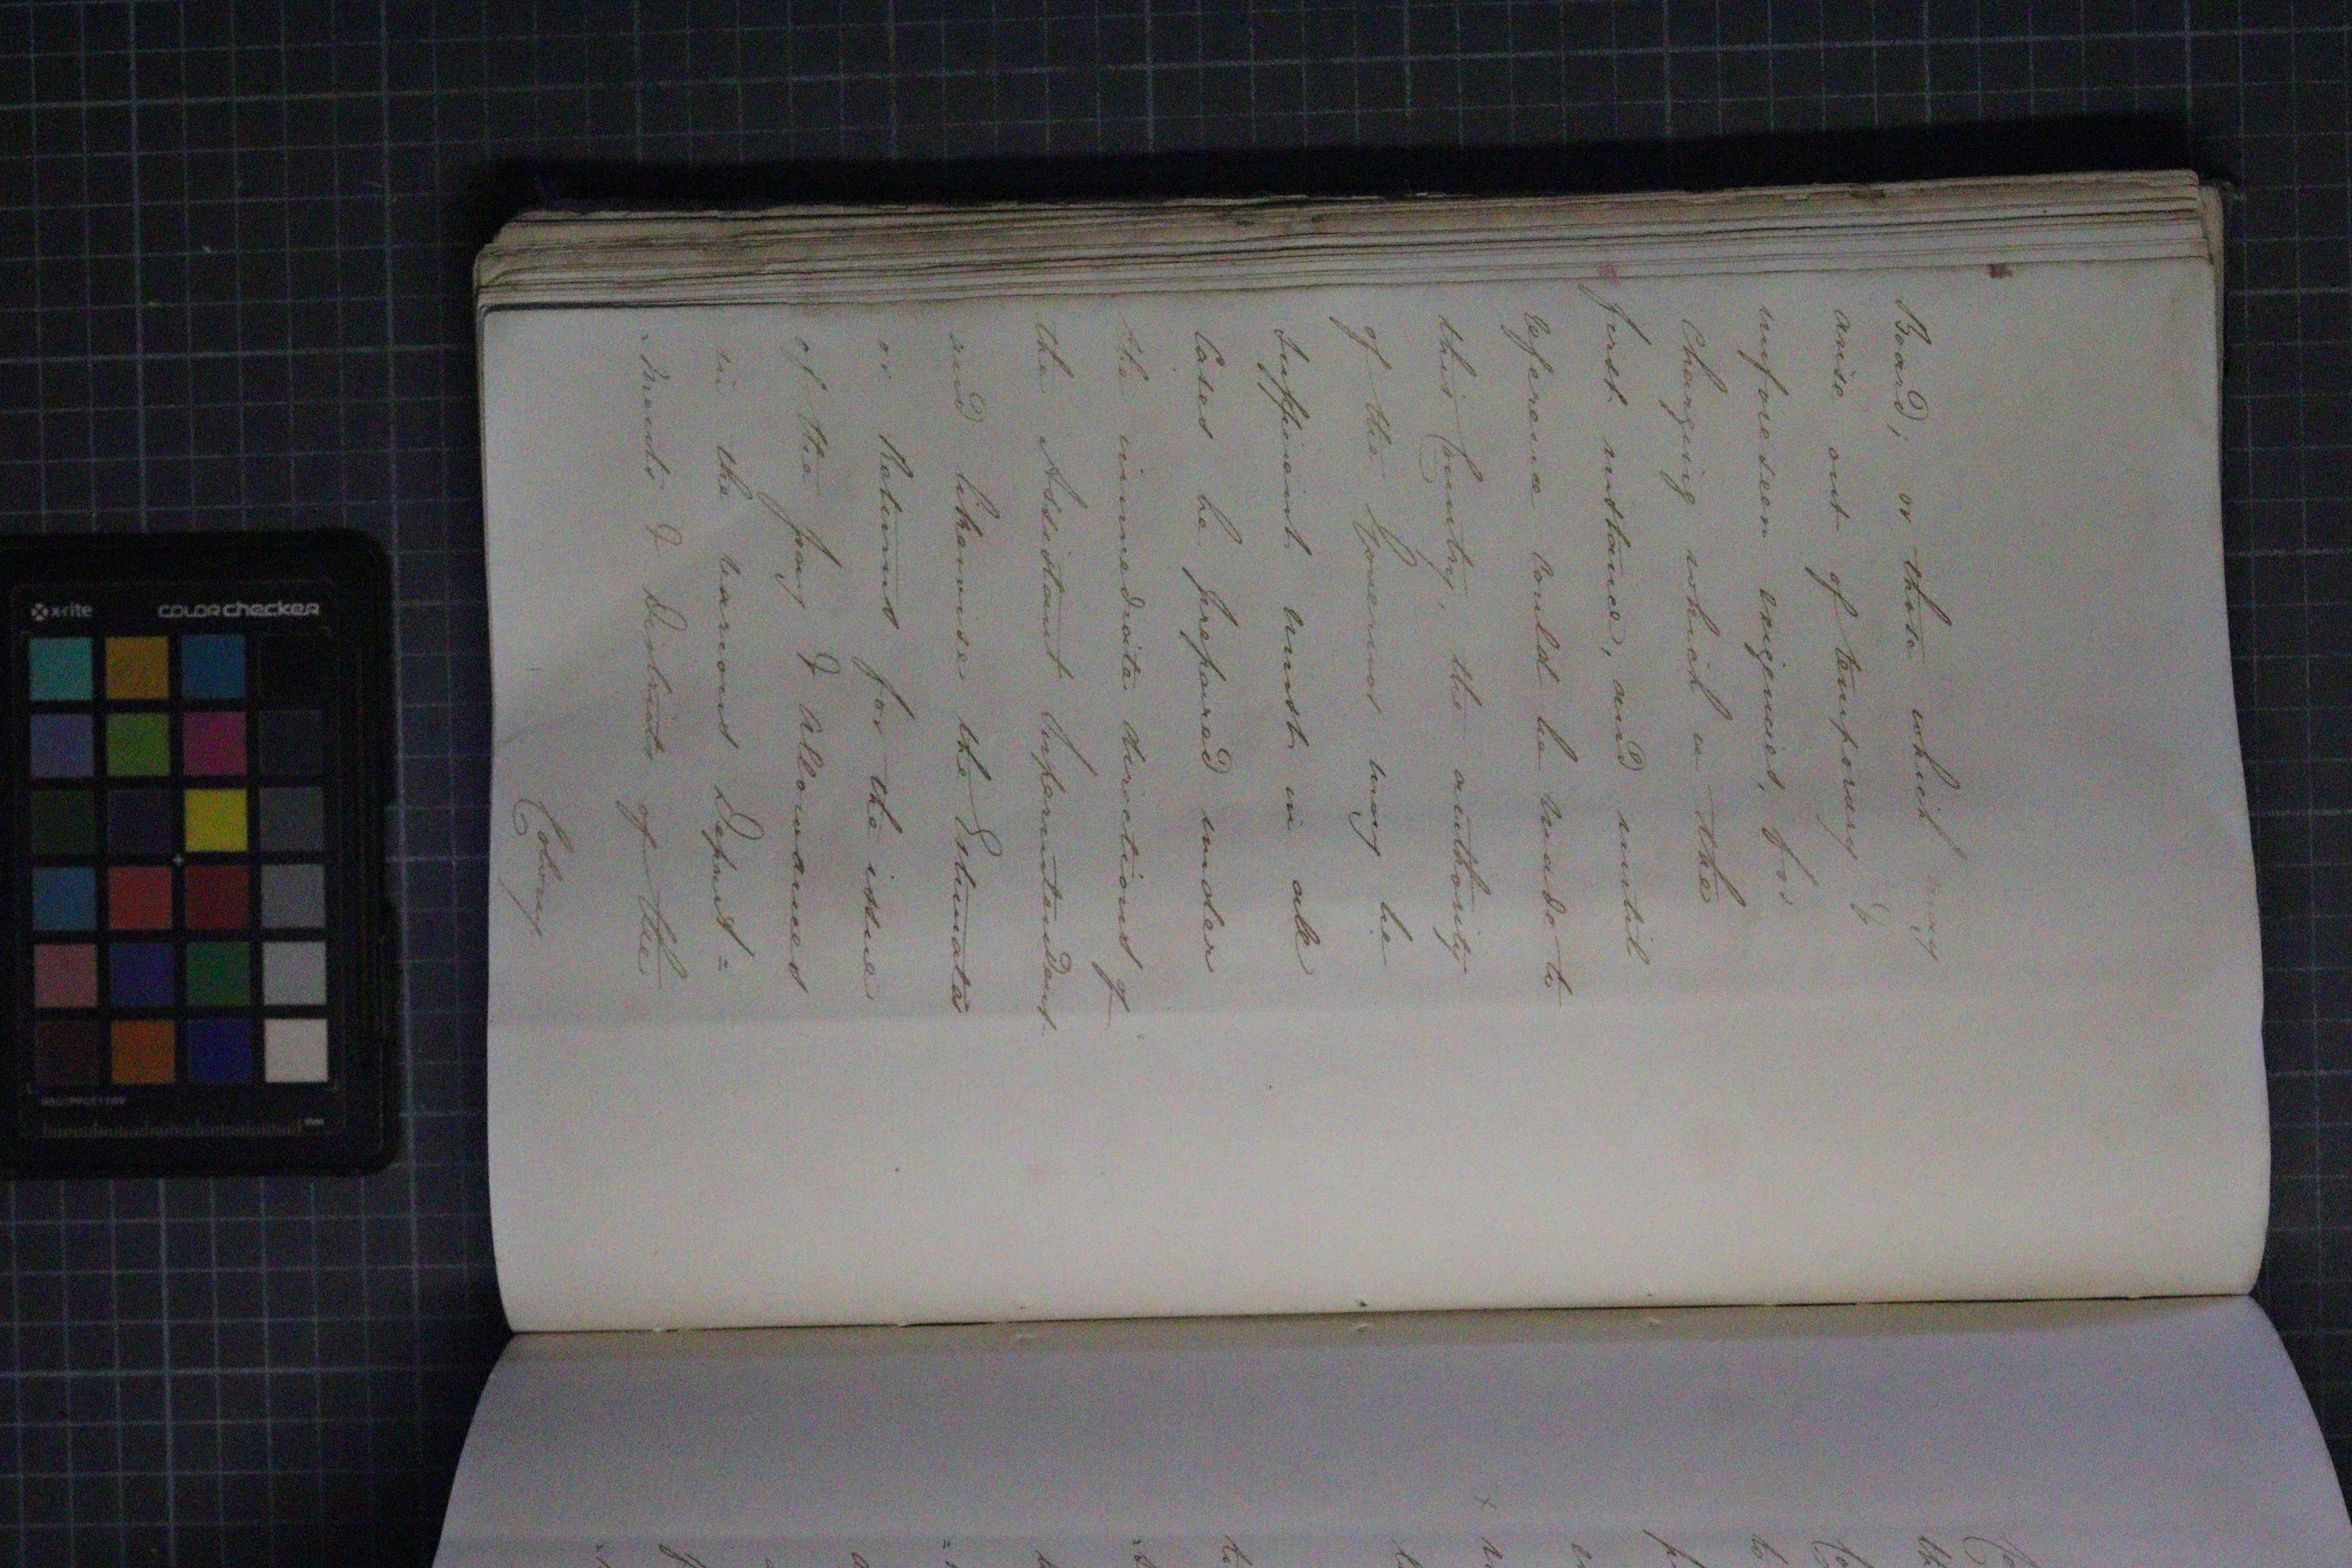 Board; or those which may
arise out of temporary &
unforeseen exigencies, for
changing which in the
first instance, and until
reference could be made to
this Country, the authority
of the Governor may be
sufficient must in all
cases be prepared under
the immediate directions of
the Assistant Superintendent
and likewise the Estimate
or Returns for the issue
of the pay & allowances
in the various Depart=
=ments & Districts of the
Colony
x-rite
colorchecker
mm